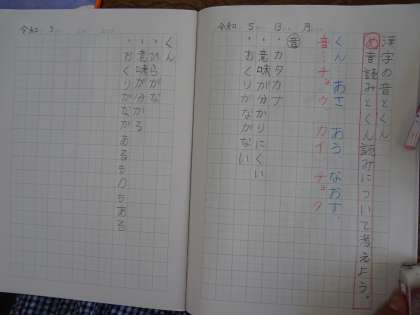 令和 5 13 月
漢字の音とくん
め 音読みとくん読みについて考えよう。
くん あさ あう なおす
音 チョウ カイ チョク
音
・カタカナ
・意味が分かりにくい
・おくりがながない
令和
くん
・ひらがな
・意味が分かる
・おくりがながあるものもある